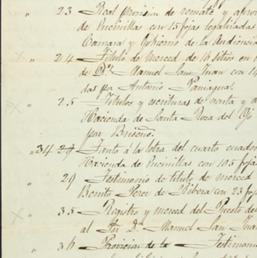 " 23 Real provision de remate y apro
de Encinillas con 15 fojas legalizadas
Camara y Gobierno de la Audiencia
" 24 Titulo de merced de 10 sitios en
de Dn. Manuel San Juan con
das por Antonio
" 25 Titulos y escrituras de venta y
Hacienda de Santa Rosa del
por Briseño.
" 34 29 Tanto á la letra del cuarto cuader
Hacienda de Encinillas con 105 foj
29 Testimonio de titulo de merced
Benito Perez de Ribera con 23 foj
" 35 Registro y merced del Puesto de
al Sor. Dn. Manuel San Jua
" 36 Provision de la Testimon